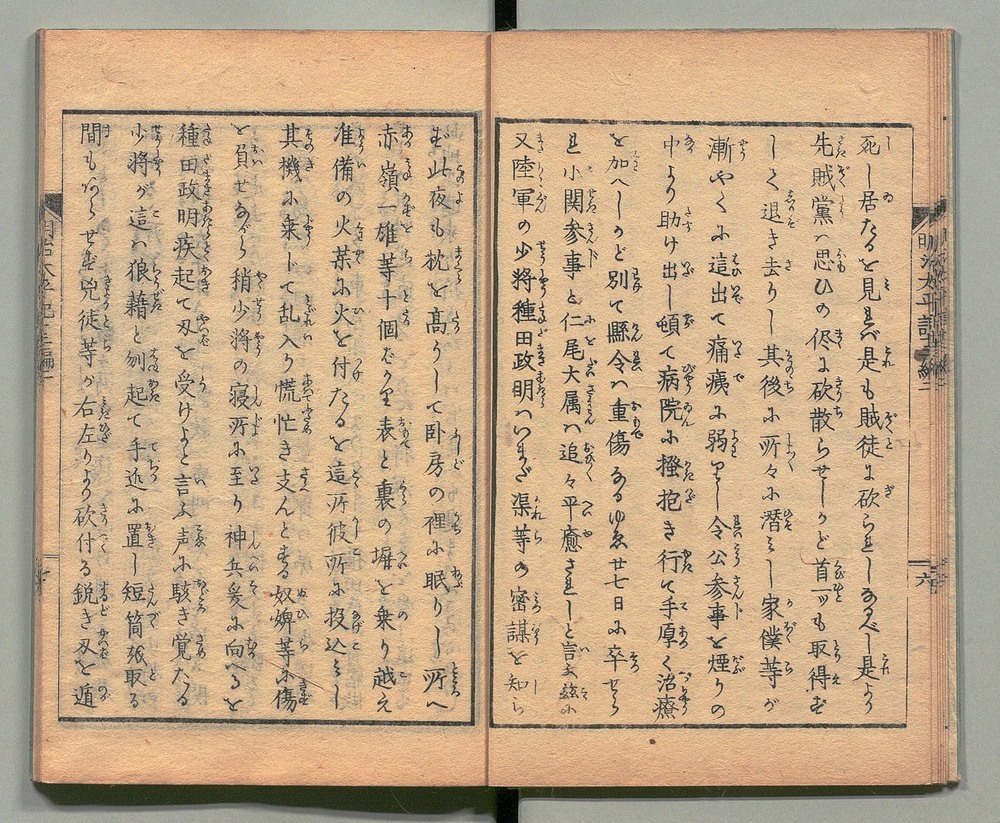 死し居たるを見れバ是も賊徒に砍られしなるべし是より
先賊黨ハ思ひの侭に砍散らせしかど首一ツも取得ず
して退き去りし其後に所々に潜みし家僕等が
漸やくに這出て痛痍に弱りし令公参事を煙りの
中より助け出し頓て病院に掻抱き行て手厚く治療
を加へしかど別て縣令ハ重傷なるゆゑ廿七日に卒せら
れ小関参事と仁尾大属ハ追々平癒されしと言ふ茲に
又陸軍の少将種田政明ハいまだ渠等の密謀を知ら
ず此夜も枕を高うして卧房の裡に眠りし所へ
赤嶺一雄等十個ばかり表と裏の塀を乗り越え
准備の火薬に火を付たるを這所彼所に投込みし
其機に乗して乱入り慌忙き支んとする奴婢等に傷
を負せながら稍少将の寝所に至り神兵爰に向へるを
種田政明疾起て刃を受けよと言ふ声に駭き覚たる
少将が這ハ狼藉と刎起て手近に置し短筒張取る
間もあらせず兇徒等が右左りより砍付る鋭き刃を遁
明治太平記
六
七